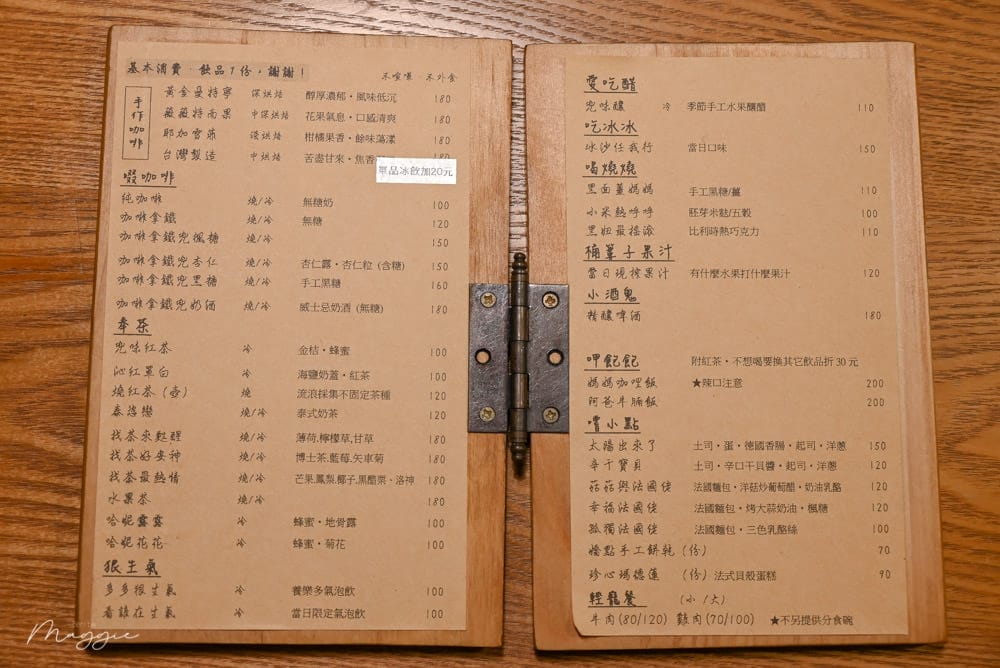 基本消費·飲品1份,謝謝!
禾喧嘩·禾外食
手作咖啡
黃金曼特寧 深烘焙 醇厚濃郁·風味低沉 180
薇薇特南果 中深烘焙 花果氣息·口感清爽 180
耶加雪菲 淺烘焙 柑橘果香·餘味蕩漾 180
台灣製造 中烘焙 苦盡甘來·焦香 180
單品冰飲加20元
啜咖啡
純咖啡 燒/冷 無糖奶 100
咖啡拿鐵 燒/冷 無糖 120
咖啡拿鐵兜楓糖 燒/冷 150
咖啡拿鐵兜杏仁 燒/冷 杏仁露·杏仁粒 (含糖) 150
咖啡拿鐵兜黑糖 燒/冷 手工黑糖 160
咖啡拿鐵兜奶酒 燒/冷 威士忌奶酒 (無糖) 180
奉茶
兜味紅茶 冷 金桔·蜂蜜 100
沁紅蓋白 冷 海鹽奶蓋·紅茶 100
燒紅茶(壺) 燒 流浪採集不固定茶種 120
泰戀 燒/冷 泰式奶茶 120
找茶來甦醒 燒/冷 薄荷.檸檬草.甘草 180
找茶好安神 燒/冷 博士茶.藍莓.矢車菊 180
找茶最熱情 燒/冷 芒果.鳳梨.椰子.黑醋栗·洛神 180
水果茶 燒/冷 180
哈妮露露 冷 蜂蜜·地骨露 100
哈妮花花 冷 蜂蜜·菊花 100
很生氣
多多很生氣 冷 養樂多氣泡飲 100
看誰在生氣 冷 當日限定氣泡飲 100
愛吃醋
兜味釀 冷 季節手工水果釀醋 110
吃冰冰
冰沙任我行 當日口味 150
喝燒燒
黑面薑媽媽 手工黑糖/薑 110
小米熱呼呼 胚芽米麩/五穀 100
黑妞最搖滾 比利時熱巧克力 110
桶箍子果汁
當日現榨果汁 有什麼水果打什麼果汁 120
小酒鬼
精釀啤酒 180
呷飽飽 附紅茶·不想喝要換其它飲品折30元
媽媽咖哩飯 ★辣口注意 200
阿爸牛腩飯 200
嚐小點
太陽出來了 土司·蛋·德國香腸·起司·洋蔥 150
辛干寶貝 土司·辛口干貝醬·起司·洋蔥 120
菇菇與法國佬 法國麵包·洋菇炒葡萄醋·奶油乳酪 120
幸福法國佬 法國麵包·烤大蒜奶油·楓糖 120
孤獨法國佬 法國麵包·三色乳酪絲 100
嬌點手工餅乾(份) 70
珍心瑪德蓮 (份) 法式貝殼蛋糕 90
輕寵餐 (小/大)
牛肉(80/120) 雞肉(70/100) ★不另提供分食碗
Maggie